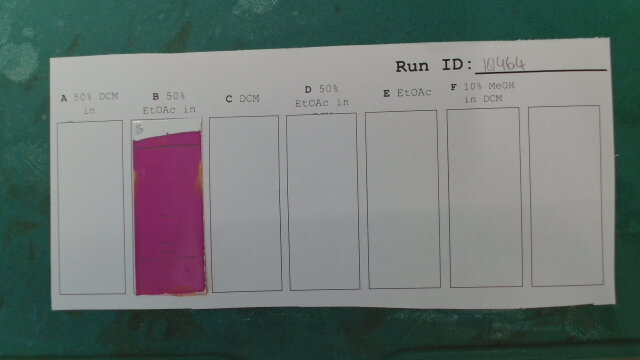 Run ID: 10464
A 50% DCM
in
B 50%
EtOAc in
C DCM
D 50%
EtOAc in
E EtOAc
F 10% MeOH
in DCM
B